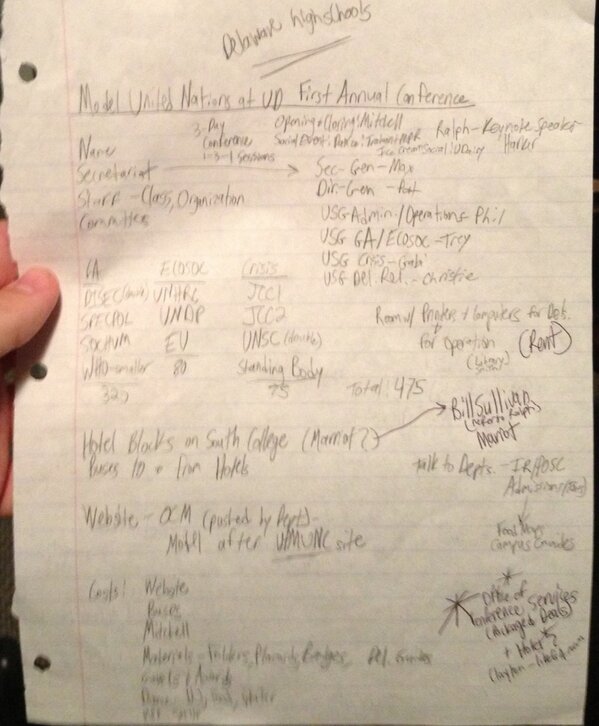 Delaware highschools
Model United Nations at UD First Annual Conference
3-Day
Conference
1-3-1 Sessions
Opening + Closing: Mitchell
Social Event:
Ice Cream Social: UDairy
Ralph - Keynote Speaker
Harker
Name
Secretariat
Staff - Class, Organization
Committees
Sec-Gen - Max
Dir-Gen -
USG Admin/Operations - Phil
USG GA/ECOSOC - Trey
USG Crisis - Gabi
USG Del. Rel. - Christie
GA ECOSOC Crisis
DISEC (double) UNHRC JCC1
SPECPOL UNDP JCC2
SOCHUM EU UNSC (double)
WHO - smaller 80 Standing Body
320 75 Total: 475
Room w/ Printers + Computers for Dels.
For Operation
(Rent)
Hotel Blocks on South College (Marriot?)
Buses to + from Hotels
Bill Sullivan
(refer to Ralph)
Marriot
Talk to Depts. - IR/POSC
Admissions
Campus Guides
Website - OCM (posted by Dept) -
Model after UMUNC site
Costs: Website
Buses
Mitchell
Materials - Folders, Placards, Badges, Del. Guides
Gavels + Awards
Office of
Conference Services
(Packaged Deals)
+ Hotel?
Clayton